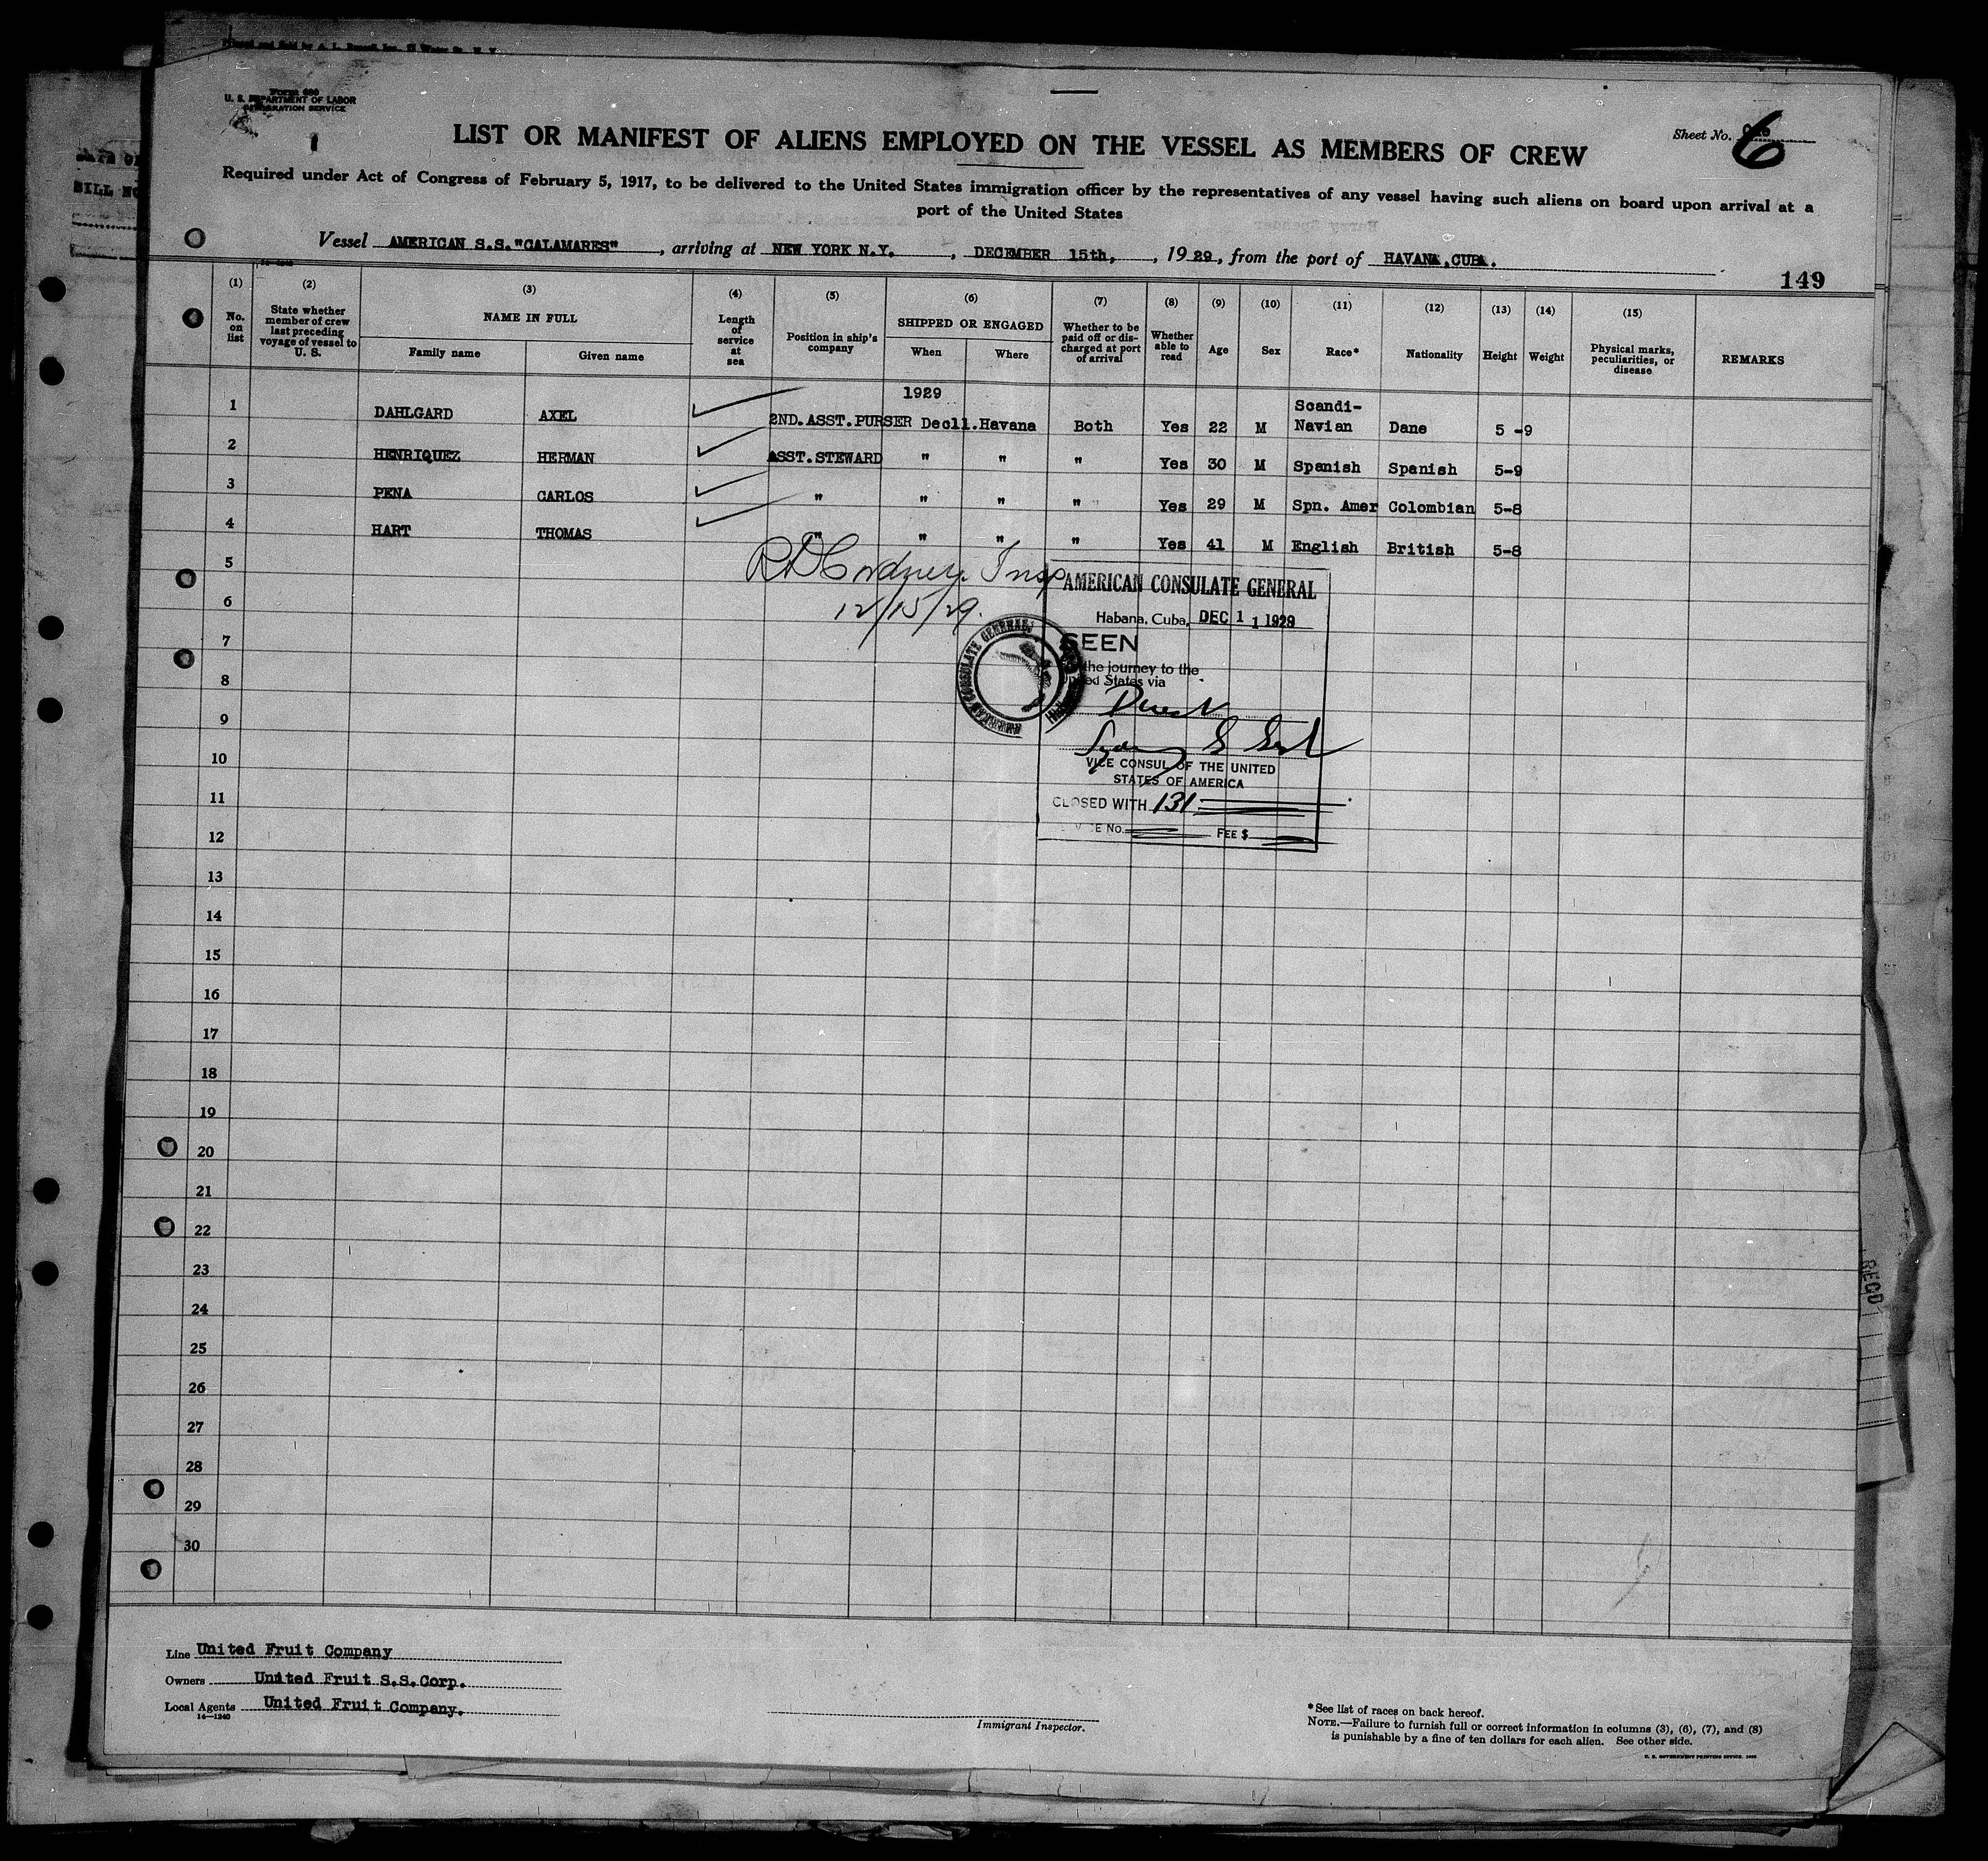 Form 680
U. S. DEPARTMENT OF LABOR
IMMIGRATION SERVICE
1
Sheet No. 6
LIST OR MANIFEST OF ALIENS EMPLOYED ON THE VESSEL AS MEMBERS OF CREW
Required under Act of Congress of February 5, 1917, to be delivered to the United States immigration officer by the representatives of any vessel having such aliens on board upon arrival at a
port of the United States
Vessel AMERICAN S.S."CALAMARES", arriving at NEW YORK N.Y., DECEMBER 15th,, 1929, from the port of HAVANA,CUBA.
149
(1) No. on list
(2) State whether member of crew last preceding voyage of vessel to U. S.
(3) NAME IN FULL Family name Given name
(4) Length of service at sea
(5) Position in ship's company
(6) SHIPPED OR ENGAGED When Where
(7) Whether to be paid off or discharged at port of arrival
(8) Whether able to read
(9) Age
(10) Sex
(11) Race*
(12) Nationality
(13) Height
(14) Weight
(15) Physical marks, peculiarities, or disease
REMARKS
1929
1 DAHLGARD AXEL 2ND.ASST.PURSER Dec11.Havana Both Yes 22 M Scandi-Navian Dane 5 -9
2 HENRIQUEZ HERMAN ASST.STEWARD " " " Yes 30 M Spanish Spanish 5-9
3 PENA CARLOS " " " " Yes 29 M Spn. Amer Colombian 5-8
4 HART THOMAS " " " " Yes 41 M English British 5-8
5
6
7
8
9
10
11
12
13
14
15
16
17
18
19
20
21
22
23
24
25
26
27
28
29
30
Insp
12/15/29.
AMERICAN CONSULATE GENERAL
Habana, Cuba, DEC 11 1929
SEEN
the journey to the
United States via
Direct
VICE CONSUL OF THE UNITED
STATES OF AMERICA
CLOSED WITH 131
No. FEE $
AMERICAN CONSULATE GENERAL
RECD
Line United Fruit Company
Owners United Fruit S.S.Corp.
Local Agents United Fruit Company.
14—1240
Immigrant Inspector.
*See list of races on back hereof.
NOTE.—Failure to furnish full or correct information in columns (3), (6), (7), and (8)
is punishable by a fine of ten dollars for each alien. See other side.